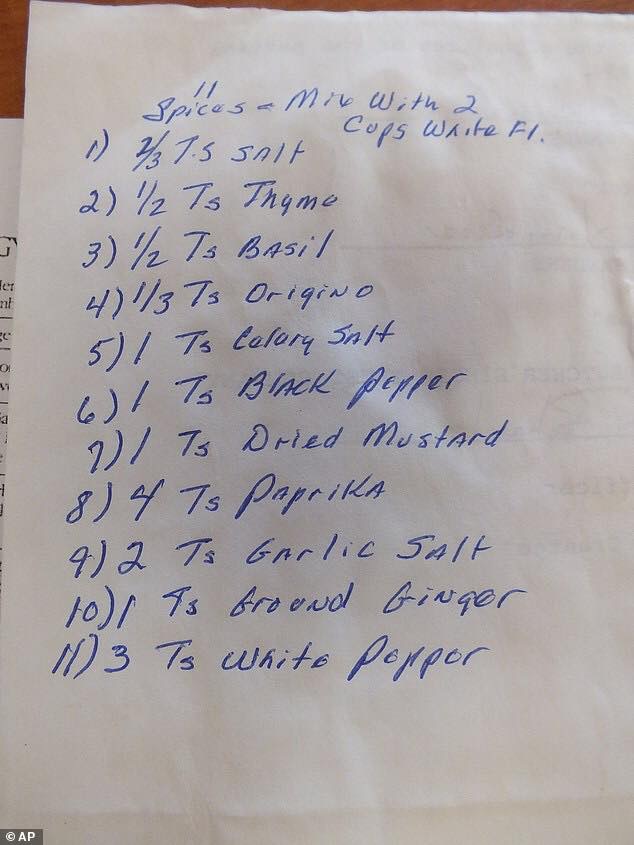 11
Spices - Mix With 2
Cups White Fl.
1) 2/3 T.S Salt
2) 1/2 Ts Thyme
3) 1/2 Ts Basil
4) 1/3 Ts Origino
5) 1 Ts Celary Salt
6) 1 Ts Black Pepper
7) 1 Ts Dried Mustard
8) 4 Ts Paprika
9) 2 Ts Garlic Salt
10) 1 Ts Ground Ginger
11) 3 Ts White Pepper
© AP